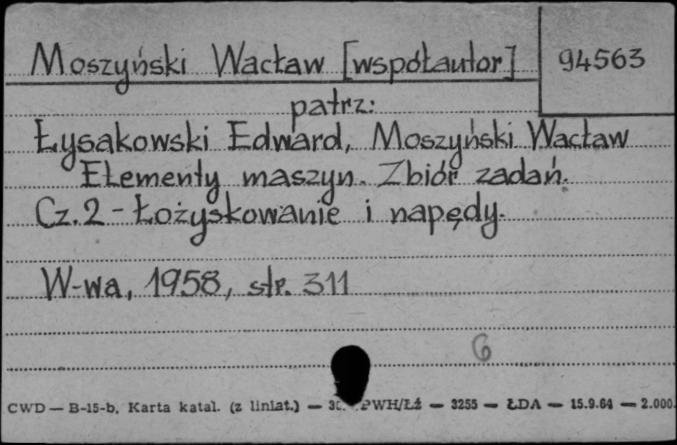 Moszyński Wacław [współautor] 94563
patrz:
Łysakowski Edward, Moszyński Wacław
Elementy maszyn. Zbiór zadań.
Cz. 2 - Łożyskowanie i napędy.
W-wa, 1958, str. 311
6
CWD — B-15-b. Karta katal. (z liniat.) — PWH/Łź — 3255 — ŁDA — 15.9.64 — 2.000.